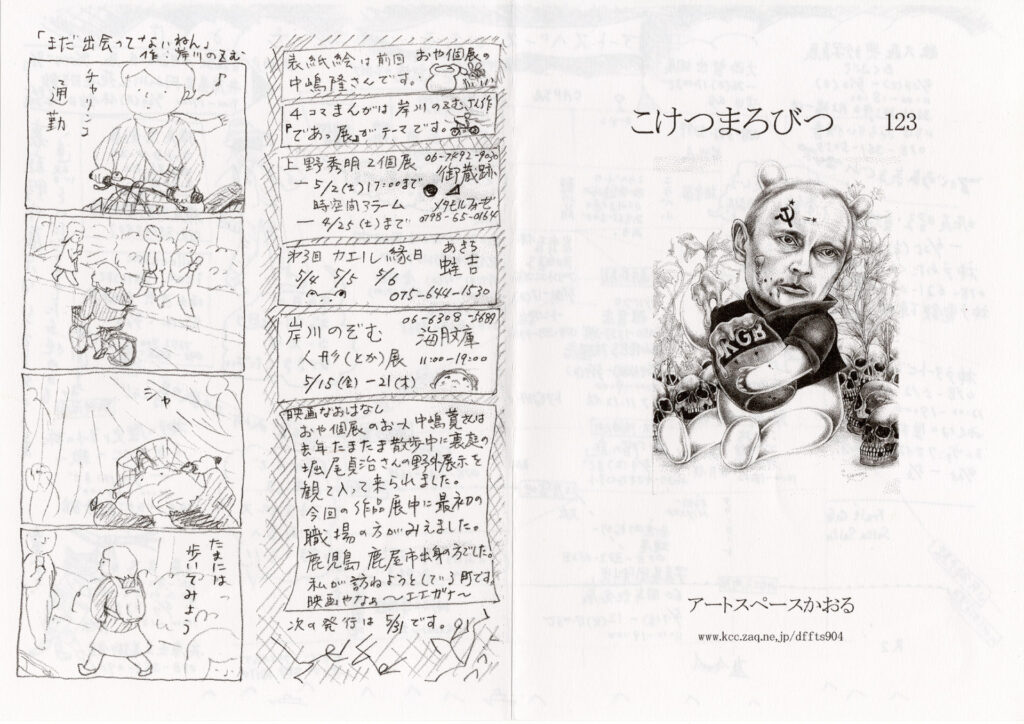 「まだ出会ってないねん」
作:岸川のぞむ
チャリンコ
通勤
シャ
たまには
歩いてみよう
表紙絵は前回 おや個展の
中嶋隆さんです。
4コマまんがは 岸川のぞむさん作
『であっ展』がテーマです。
上野秀明2個展 06-7492-9030
御蔵跡
― 5/2(土)17:00まで
時空間アラーム メタモルフォゼ
― 4/25(土)まで 0798-65-0164
第3回 カエール 縁日 あきち
蛙吉
5/4 5/5 5/6
075-644-1530
06-6308-3689
岸川のぞむ 海月文庫
人形(とか)展 11:00-19:00
5/15(金)-21(木)
映画なおはなし
おや個展のお一人 中嶋寛さんは
去年 たまたま散歩中に裏庭の
堀尾貞治さんの野外展示を
観て入って来られました。
今回の作品展中に最初の
職場の方がみえました。
鹿児島 鹿屋市出身の方でした。
私が訪ねようとしている町です。
映画やなぁ~エエガナ~
次の発行は 5/31です。
こけつまろびつ 123
RGB
アートスペースかおる
www.kcc.zaq.ne.jp/dffts904